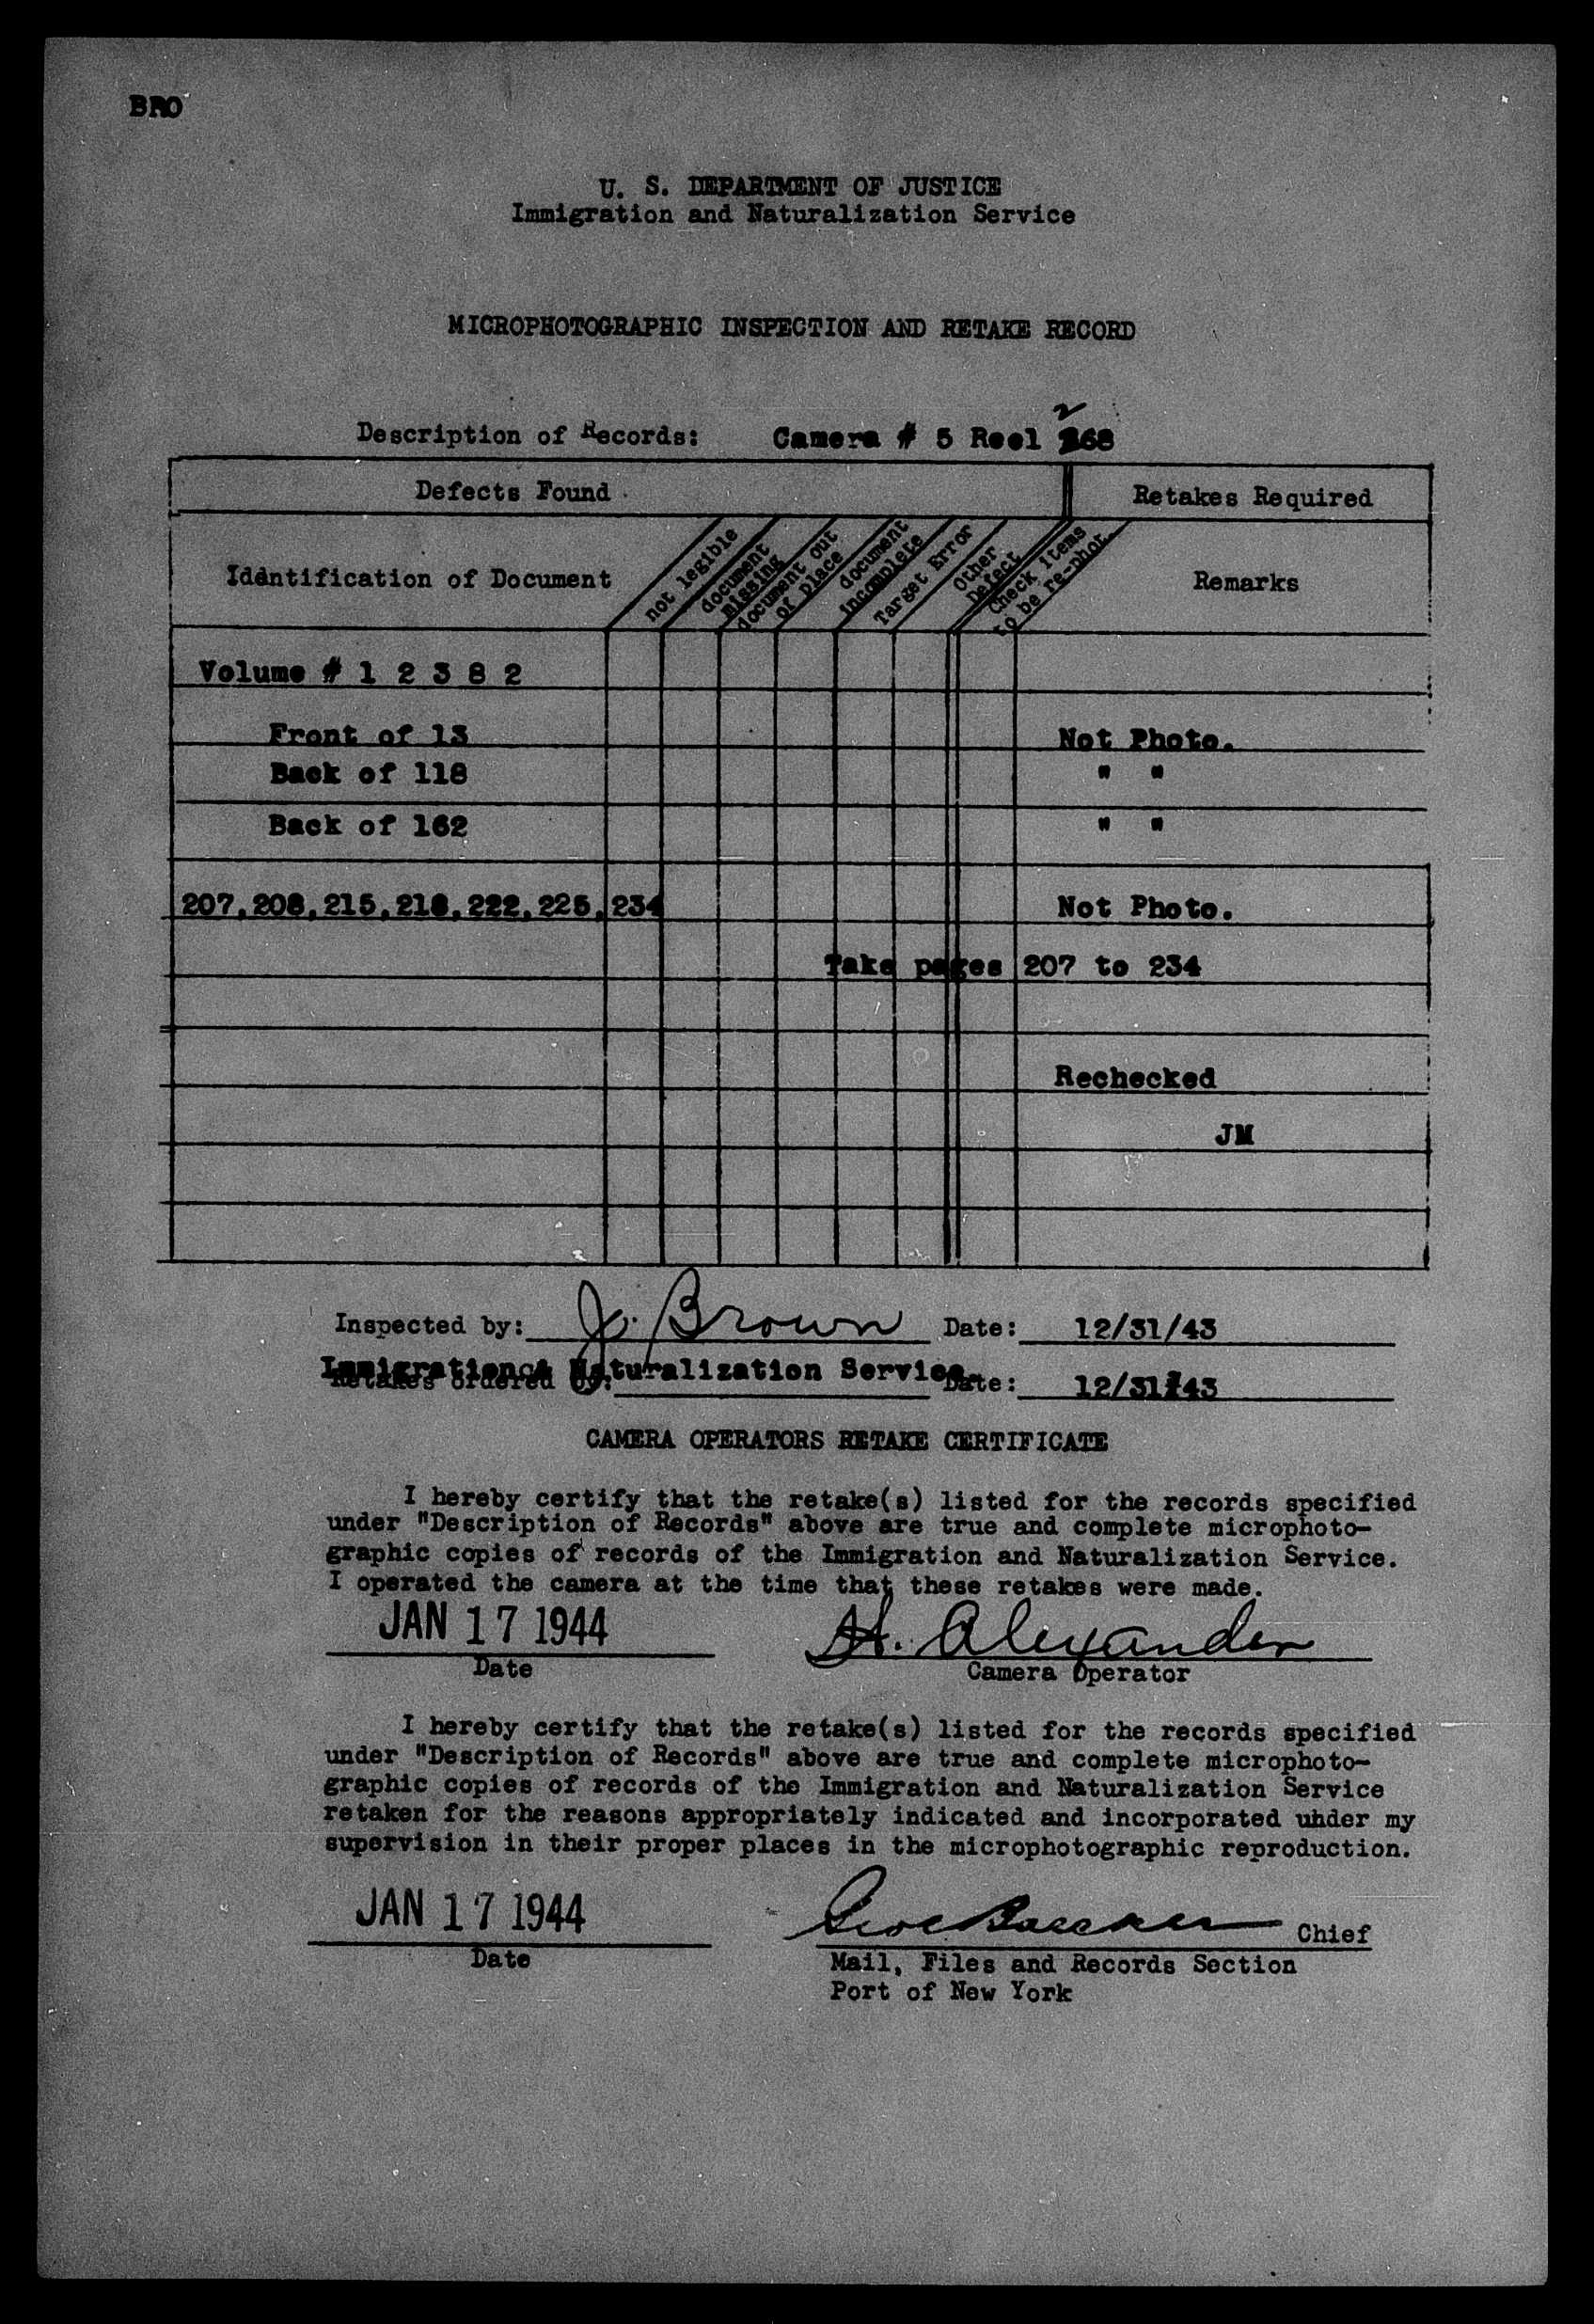 BRO
U. S. DEPARTMENT OF JUSTICE
Immigration and Naturalization Service
MICROPHOTOGRAPHIC INSPECTION AND RETAKE RECORD
Description of Records: Camera # 5 Reel 268
Defects Found
Retakes Required
Identification of Document
not legible
document missing
document out of place
document incomplete
Target Error
Other Defect
Check items to be re-phot.
Remarks
Volume # 1 2 3 8 2
Front of 13 Not Photo.
Back of 118 " "
Back of 162 " "
207,208,215,218,222,225,234 Not Photo.
Take pages 207 to 234
Rechecked
JM
Inspected by: J. Brown Date: 12/31/43
Immigration & Naturalization Service.
Retakes ordered by: Date: 12/31/43
CAMERA OPERATORS RETAKE CERTIFICATE
I hereby certify that the retake(s) listed for the records specified
under "Description of Records" above are true and complete microphoto-
graphic copies of records of the Immigration and Naturalization Service.
I operated the camera at the time that these retakes were made.
JAN 17 1944 H. Alexander
Date Camera Operator
I hereby certify that the retake(s) listed for the records specified
under "Description of Records" above are true and complete microphoto-
graphic copies of records of the Immigration and Naturalization Service
retaken for the reasons appropriately indicated and incorporated under my
supervision in their proper places in the microphotographic reproduction.
JAN 17 1944 Chief
Date Mail, Files and Records Section
Port of New York